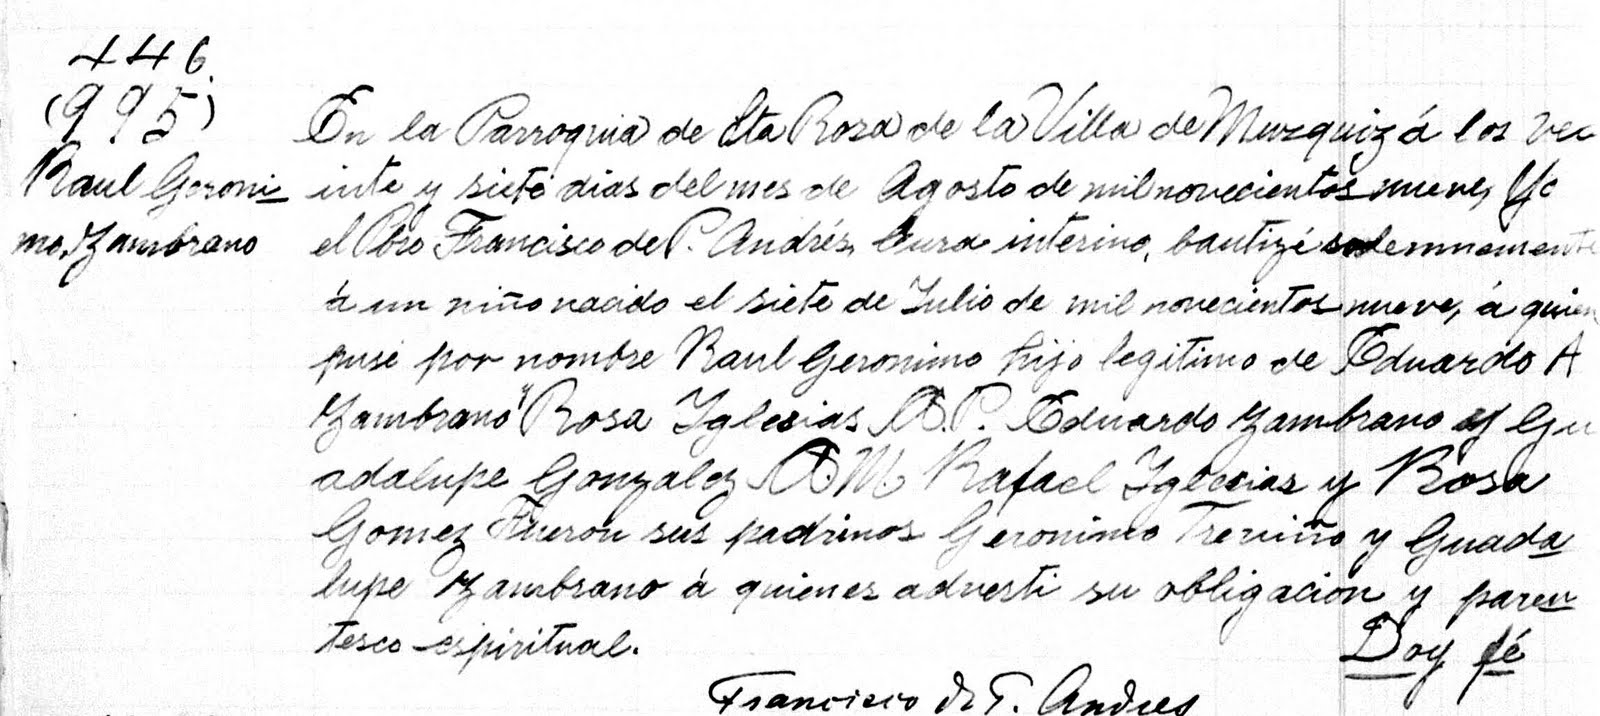 446.
(995)
Raul Geroni
mo, Zambrano
En la Parroquia de Sta Rosa de la Villa de Muzquiz á los ve
inte y siete dias del mes de Agosto de mil novecientos nueve, Yo
el Pbro Francisco de P. Andrés, Cura interino, bautizé solemnemente
á un niño nacido el siete de Julio de mil novecientos nueve, á quien
puse por nombre Raul Geronimo hijo legitimo de Eduardo A
Zambrano y Rosa Iglesias A.P. Eduardo Zambrano y Gu
adalupe Gonzalez A M Rafael Iglesias y Rosa
Gomez Fueron sus padrinos Geronimo Treviño y Guada
lupe Zambrano á quienes adverti su obligacion y paren
tesco espiritual.
Doy fé
Francisco de P. Andres